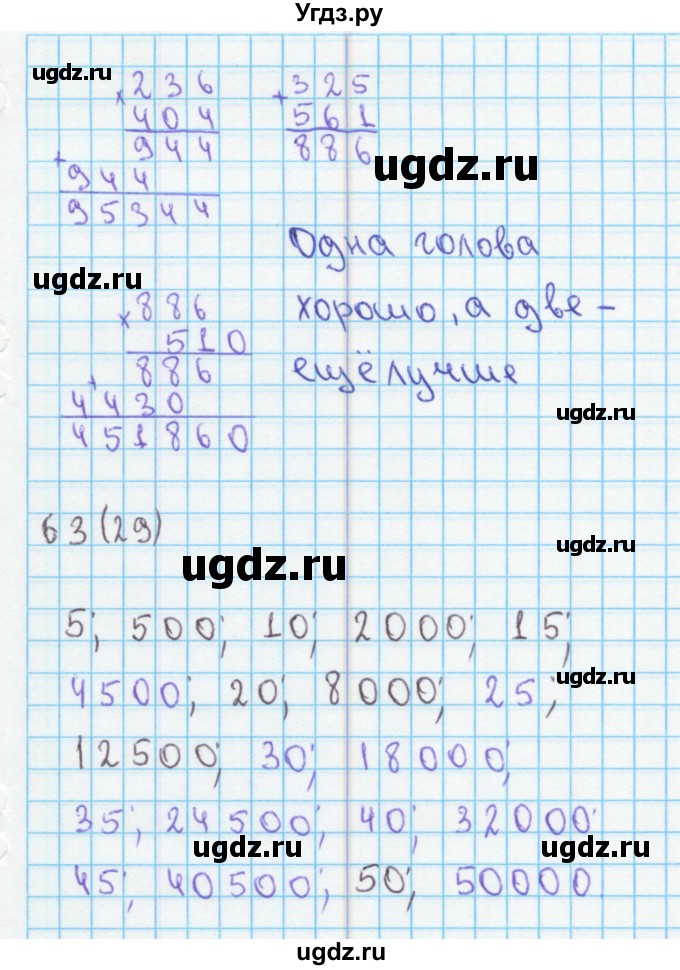 Угдз.ру
ugdz.ru
236
× 404
944
+ 944
95344
325
+ 561
886
ugdz.ru
Одна голова
хорошо, а две -
ещё лучше
ugdz.ru
886
× 510
886
+ 4430
451860
ugdz.ru
63 (29)
ugdz.ru
ugdz.ru
5; 500; 10; 2000; 15;
4500; 20; 8000; 25;
ugdz.ru
12500; 30; 18000;
35; 24500; 40; 32000;
ugdz.ru
ugdz.ru
45; 40500; 50; 50000
ugdz.ru